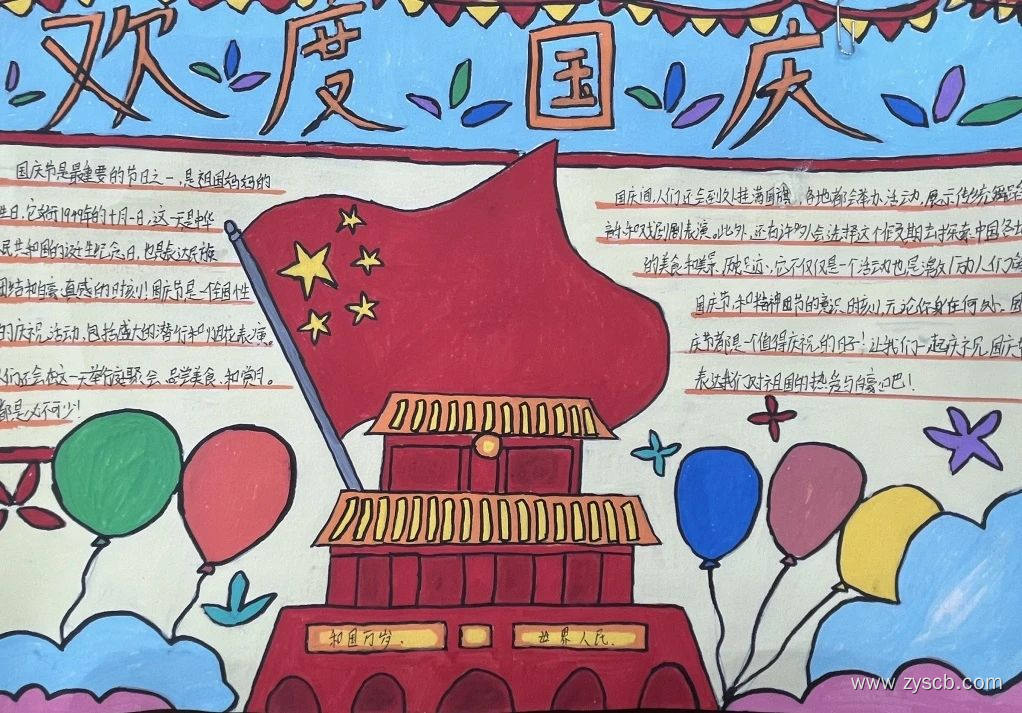 欢度国庆
国庆节是最重要的节日之一,是祖国妈妈的
生日,它始于1949年的十月一日,这一天是中华
民共和国的诞生纪念日,也是表达民族
团结和自豪感的时刻!国庆节是一个全国性
的庆祝活动,包括盛大的游行和烟花表演。
人们还会在这一天举行庭聚会、品尝美食、和赏月。
都是必不可少!
国庆间,人们还会到久挂满国旗,各地都会举办活动,展示传统
和戏剧表演。此外,还有许多会选择这个作假期去探索中国各
的美食和美景,它不仅仅是一个活动也是激
国庆节和精神回节的意识时刻,无论你身在何处,国
庆节都是一个值得庆祝的日子!让我们一起庆祝国庆节
表达我们对祖国的热爱与自豪吧!
和国万岁.
世界人民.
www.zyscb.com